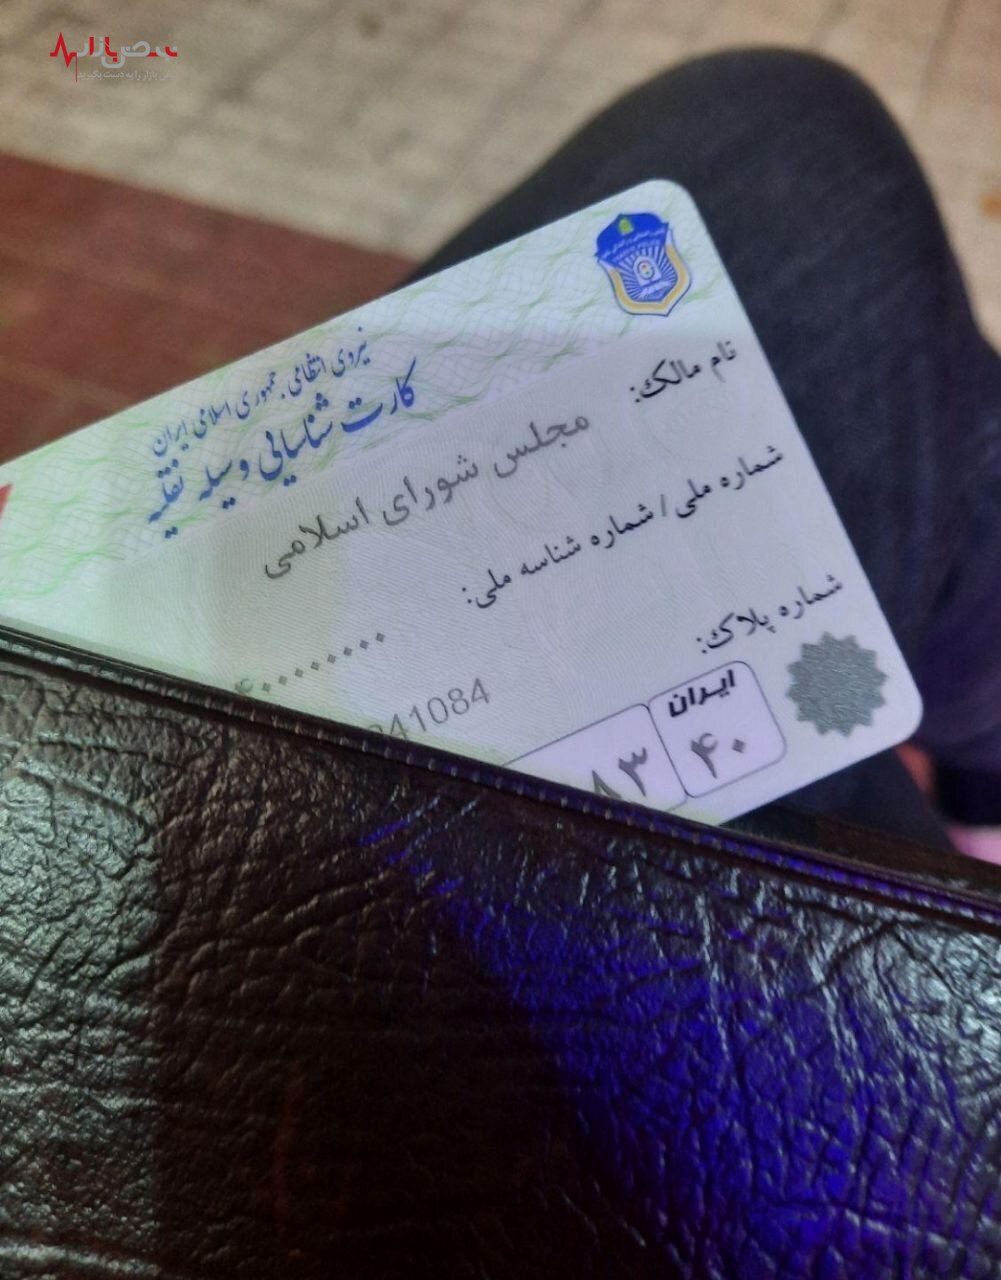 نبض بازار
نیروی انتظامی . جمهوری اسلامی ایران
کارت شناسایی وسیله نقلیه
نام مالک:
مجلس شورای اسلامی
شماره ملی / شماره شناسه ملی:
۴۰۰۰۰۰۰۰۰۰
شماره پلاک:
41084
ایران
۴۰
۸۳